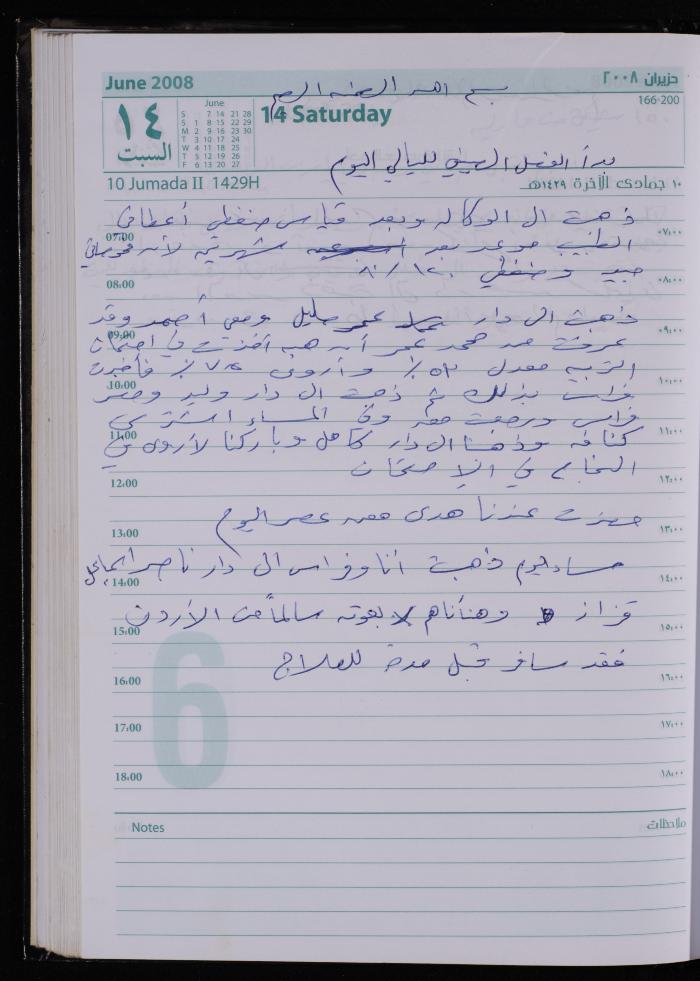 June 2008
حزيران ٢٠٠٨
بسم الله الرحمن الرحيم
١٤
السبت
June
S 7 14 21 28
S 1 8 15 22 29
M 2 9 16 23 30
T 3 10 17 24
W 4 11 18 25
T 5 12 19 26
F 6 13 20 27
14 Saturday
166-200
بدأ الفصل الصيفي لليالي اليوم
10 Jumada II 1429H
١٠ جمادى الآخرة ١٤٢٩هـ
ذهبت الى الوكالة وبعد قياس ضغطي أعطاني
07:00
٠٧:٠٠
الطبيب موعد بعد شهرين لأنه
08:00
٠٨:٠٠
جيد وضغطي ١٢٠/٨٠
ذهبت الى دار عمر خليل ومعي أحمد وقد
09:00
٠٩:٠٠
عرفت من محمد عمر أن هبه أخذت في امتحان
التربيه معدل ٥٣٪ وأروى ٧٨٪ فأخبرت
10:00
١٠:٠٠
فراس بذلك ثم ذهبت الى دار وليد وحضر
فراس ورجعت معه وفي المساء اشترى
11:00
١١:٠٠
كنافه وذهبنا الى دار كامل وباركنا لأروى في
النجاح في الامتحان
12:00
١٢:٠٠
حضرت عندنا هدى معنه عصر اليوم
13:00
١٣:٠٠
مساء اليوم ذهبت أنا وفراس الى دار ناصر
14:00
١٤:٠٠
قزاز وهنأناهم بعوته سالماً من الأردن
15:00
١٥:٠٠
فقد سافر قبل مدة للعلاج
16:00
١٦:٠٠
6
17:00
١٧:٠٠
18:00
١٨:٠٠
Notes
ملاحظات